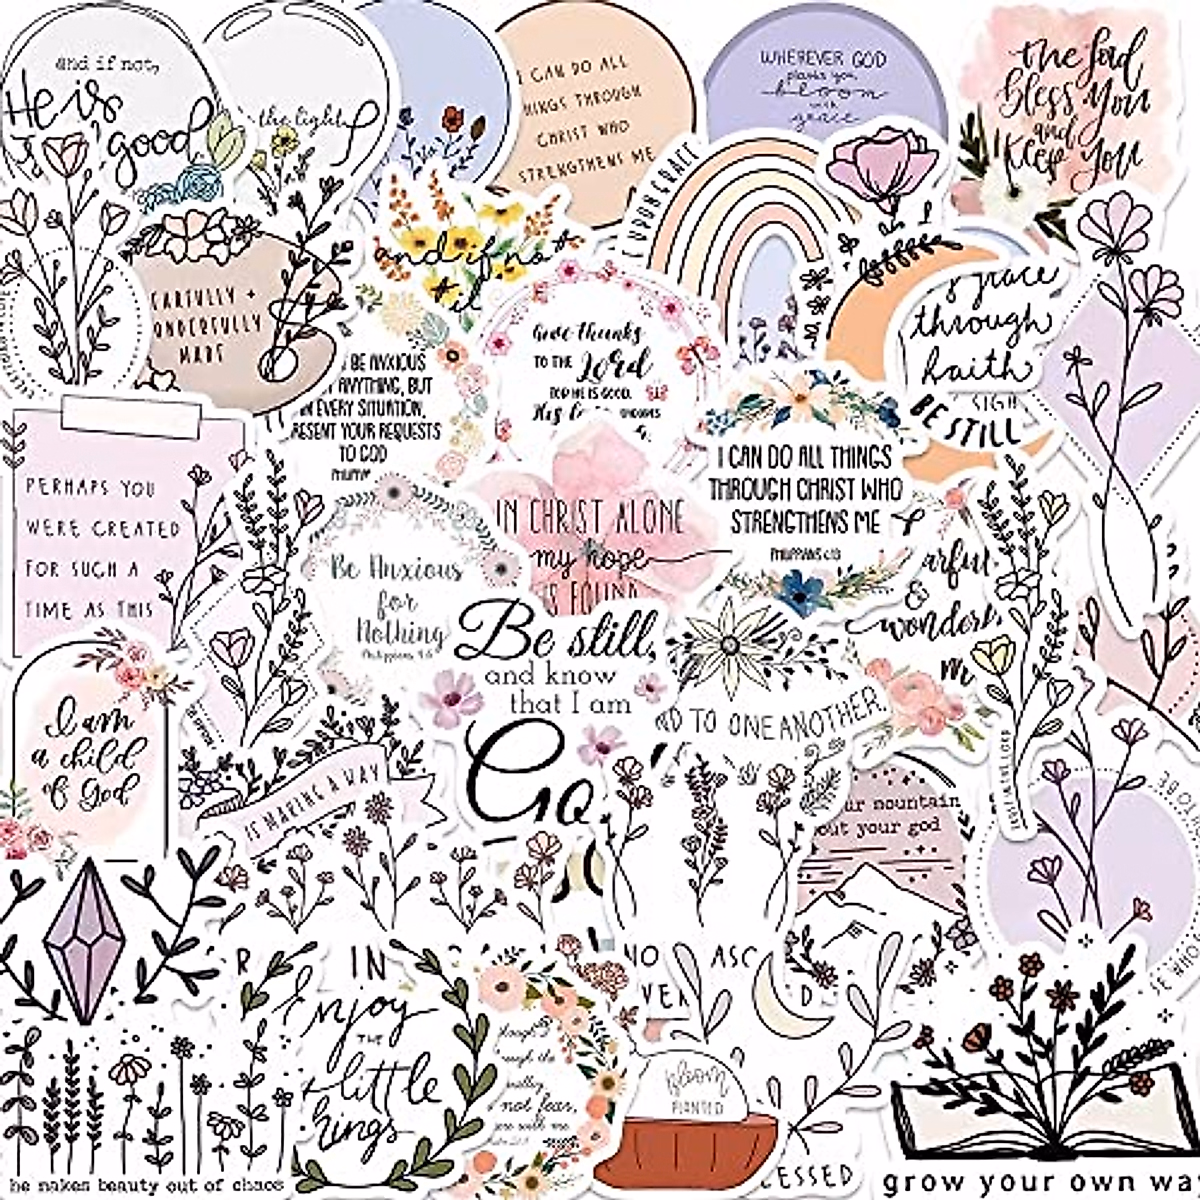 and if not,
He is
good
the light
I CAN DO ALL
THINGS THROUGH
CHRIST WHO
STRENGTHENS ME
WHEREVER GOD
plants you,
bloom
with
grace
the Lord
bless You
and
Keep You
UPON GRACE
and if not
+
WONDERFULLY
MADE
BE ANXIOUS
ANYTHING, BUT
IN EVERY SITUATION,
PRESENT YOUR REQUESTS
TO GOD
Give thanks
TO THE Lord
FOR HE IS GOOD.
His
grace
through
faith
SIGH
BE STILL
I CAN DO ALL THINGS
THROUGH CHRIST WHO
STRENGTHENS ME
PHILIPPIANS 4:13
PERHAPS YOU
WERE CREATED
FOR SUCH A
TIME AS THIS
IN CHRIST ALONE
my hope
IS FOUND
Be Anxious
for
Nothing
Philippians 4:6
Be still,
and know
that I am
Go
&
wonderf
TO ONE ANOTHER
I am
a child
of God
IS MAKING A WAY
mountain
out your god
R IN
Enjoy
THE
little
hings
not fear,
NO ASC
bloom
PLANTED
ESSED
he makes beauty out of chaos
grow your own wa